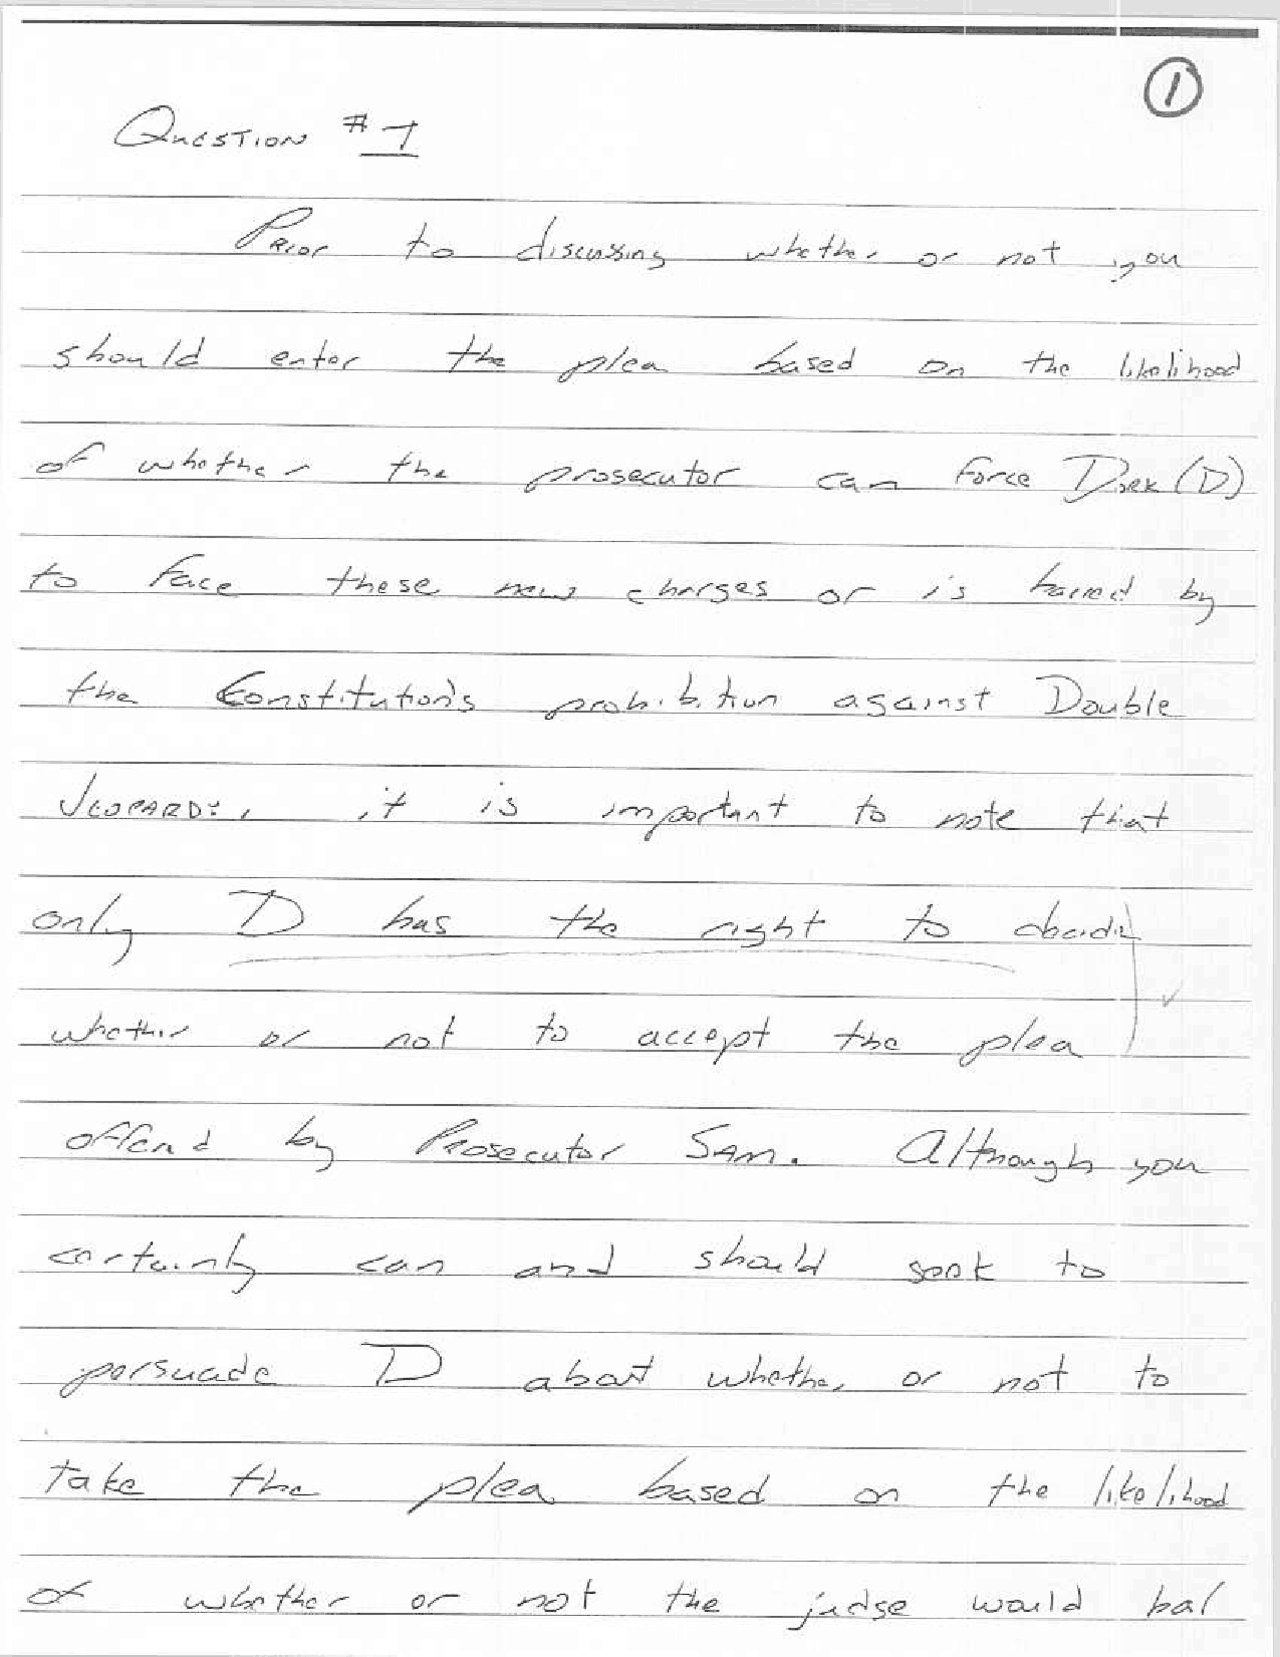 1
Question #1
Prior to discussing whether or not you
should enter the plea based on the likelihood
of whether the prosecutor can force Derek (D)
to face these new charges or is barred by
the Constitution's prohibition against Double
Jeopardy, it is important to note that
only D has the right to
whether or not to accept the plea
offered by Prosecutor Sam. Although you
certainly can and should seek to
persuade D about whether or not to
take the plea based on the likelihood
of whether or not the judge would bar